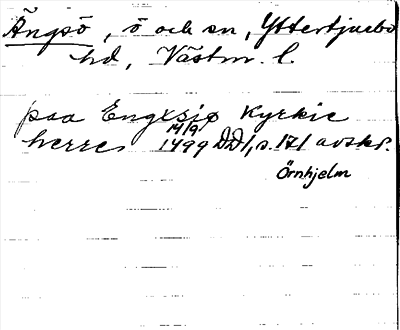 Ängsö, ö och sn, Yttertjurbo
hd, Västm. l.
paa Engxsiø Kyrkie
herre 14/9 1499 DD1, s. 171 avskr.
Örnhjelm